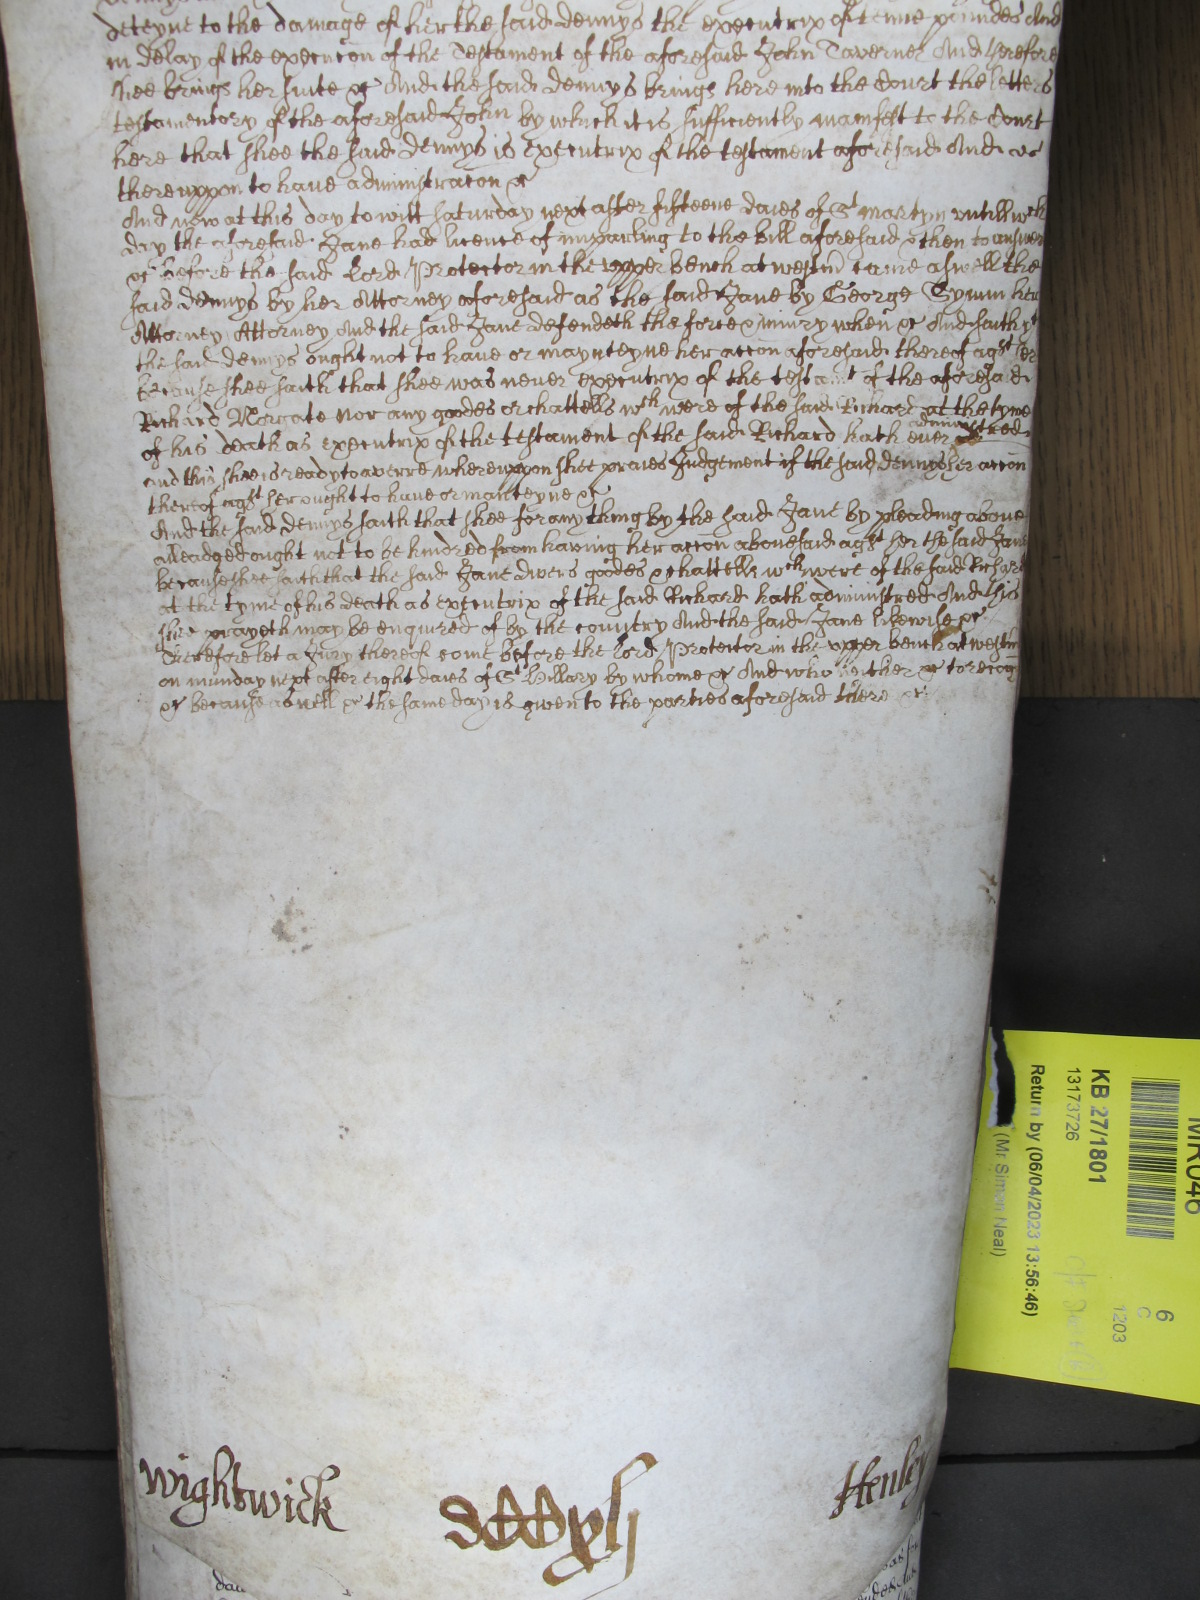 deteyne to the damage of her the said Dennys the executrix of tenne poundes And
in delay of the execucon of the Testament of the aforesaid John Taverner And therefore
shee brings her suite &c And the said Dennys brings here into the Court the letters
testamentory of the aforesaid John by which it is sufficiently manifest to the Court
here that shee the said Dennys is executrix of the testament aforesaid And
thereuppon to have administracon &c
And now at this day to witt Saturday next after fifteene daies of St Martyn untill wch
day the aforesaid Jane had licence of imparling to the bill aforesaid & then to answer
&c before the said Lord Protector in the upper bench at westm came aswell the
said Dennys by her Attorney aforesaid as the said Jane by George Gynn her
Attorney Attorney And the said Jane defendeth the force & iniury when &c And saith yt
the said Dennys ought not to have or maynteyne her accon aforesaid thereof agst her
because shee saith that shee was never executrix of the testamt of the aforesaid
Richard Norgate nor any goodes or chattells wch were of the said Richard at the tyme
of his death as executrix of the testament of the said Richard hath ever administred
and this shee is ready to averre whereuppon shee praies Judgement if the said Dennys her accon
thereof agst her ought to have or manteyne &c
And the said Dennys saith that shee for any thing by the said Jane by pleading above
alleadged ought not to be hindred from having her accon abovesaid agst her the said Jane
because shee saith that the said Jane divers goodes & chattells wch were of the said Richard
at the tyme of his death as executrix of the said Richard hath administred And this
shee prayeth may be enquired of by the country And the said Jane likewise &c
Therefore let a Jury thereof come before the Lord Protector in the upper bench at westm
on munday next after eight daies of St Hillary by whome &c And who neither &c to recog
&c because aswell &c the same day is given to the parties aforesaid there &c
Wightwick
Henley
MR046
6
C
1203
KB 27/1801
13173726
Return by (06/04/2023 13:56:46)
(Mr Simon Neal)